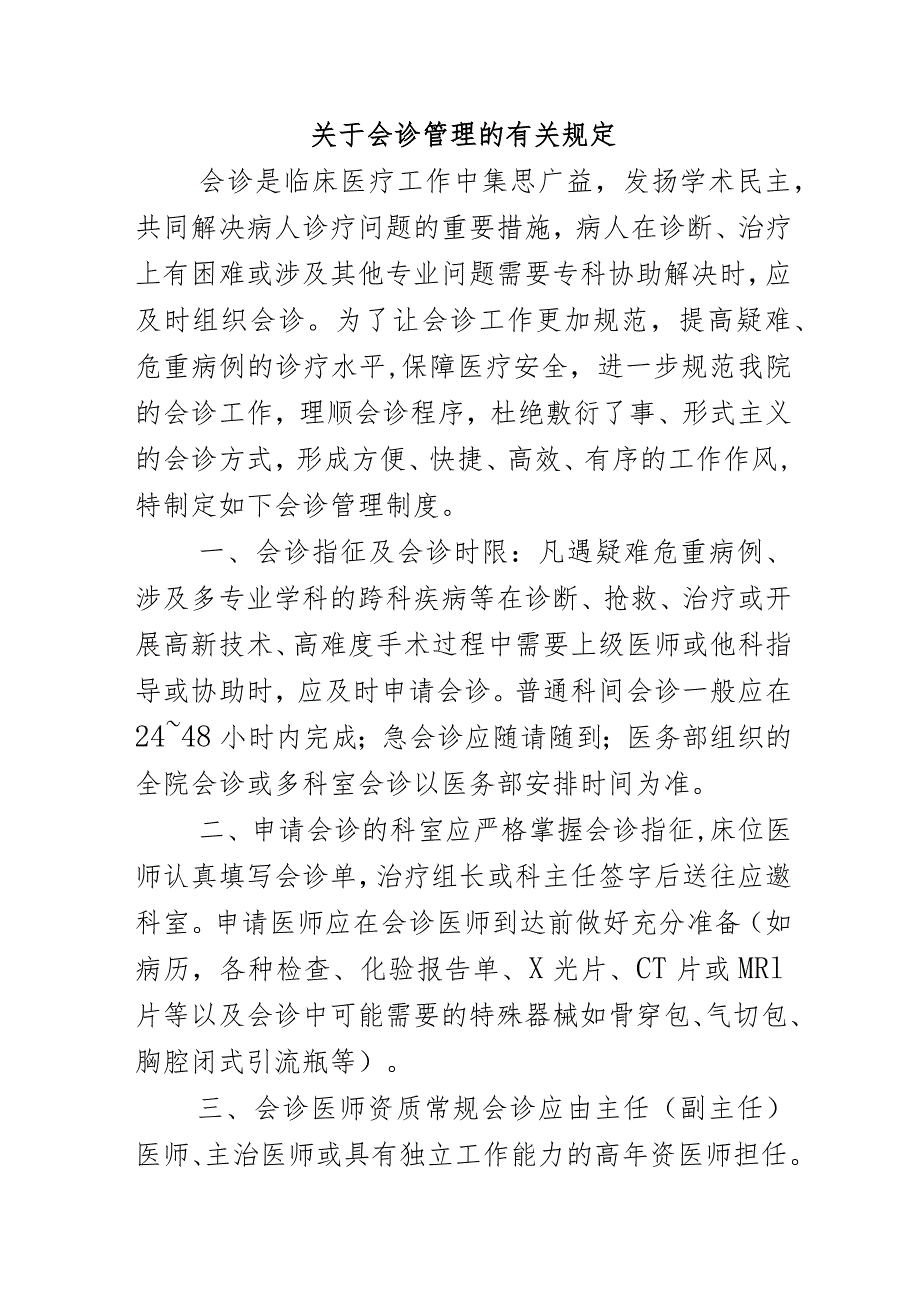 关于会诊管理的有关规定
会诊是临床医疗工作中集思广益，发扬学术民主，
共同解决病人诊疗问题的重要措施，病人在诊断、治疗
上有困难或涉及其他专业问题需要专科协助解决时，应
及时组织会诊。为了让会诊工作更加规范，提高疑难、
危重病例的诊疗水平,保障医疗安全，进一步规范我院
的会诊工作，理顺会诊程序，杜绝敷衍了事、形式主义
的会诊方式，形成方便、快捷、高效、有序的工作作风,
特制定如下会诊管理制度。
一、会诊指征及会诊时限：凡遇疑难危重病例、
涉及多专业学科的跨科疾病等在诊断、抢救、治疗或开
展高新技术、高难度手术过程中需要上级医师或他科指
导或协助时，应及时申请会诊。普通科间会诊一般应在
24~48 小时内完成；急会诊应随请随到；医务部组织的
全院会诊或多科室会诊以医务部安排时间为准。
二、申请会诊的科室应严格掌握会诊指征,床位医
师认真填写会诊单,治疗组长或科主任签字后送往应邀
科室。申请医师应在会诊医师到达前做好充分准备（如
病历，各种检查、化验报告单、X 光片、CT 片或 MRl
片等以及会诊中可能需要的特殊器械如骨穿包、气切包、
胸腔闭式引流瓶等）。
三、会诊医师资质常规会诊应由主任（副主任）
医师、主治医师或具有独立工作能力的高年资医师担任。